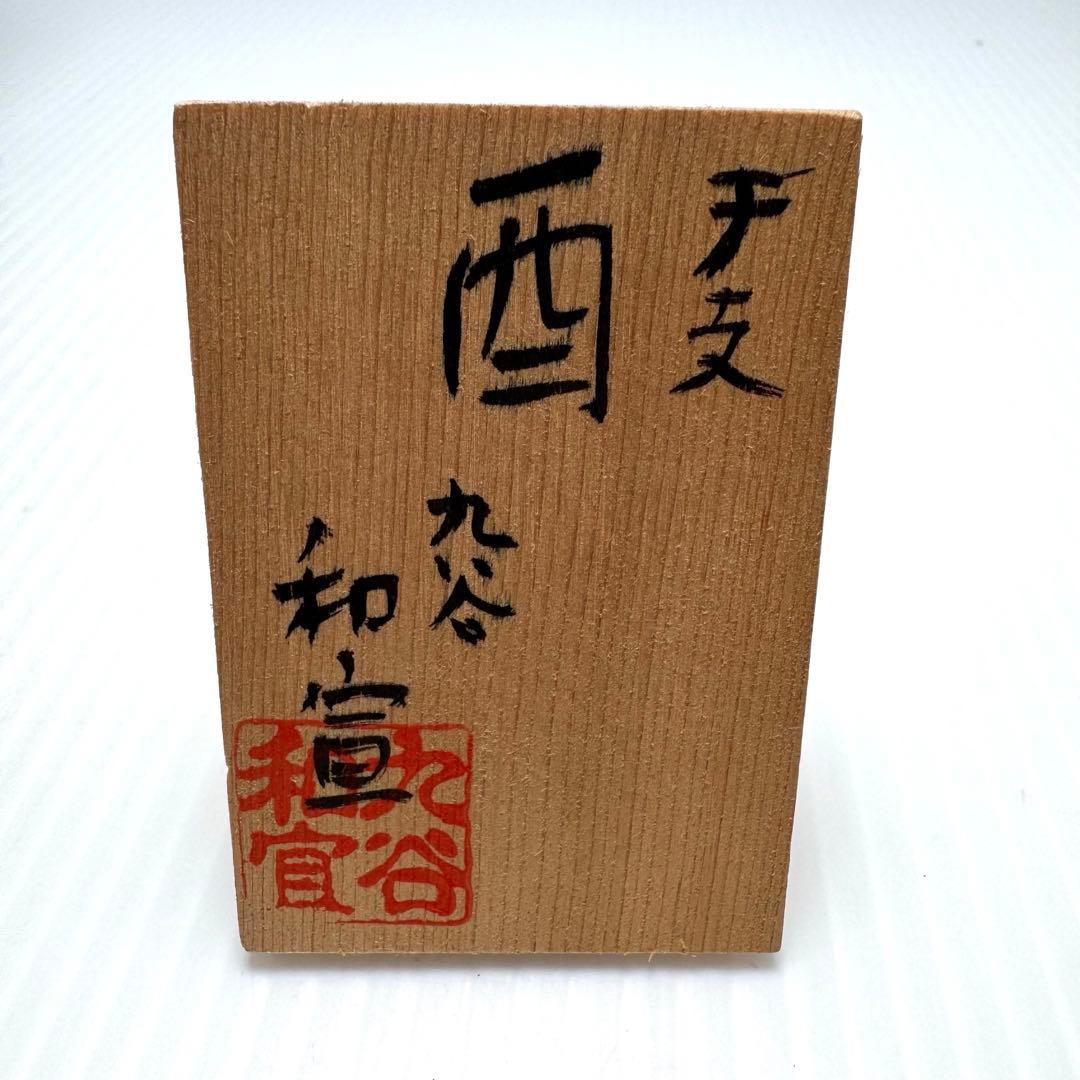 干支
酉
九谷
和宣
九谷
和宣